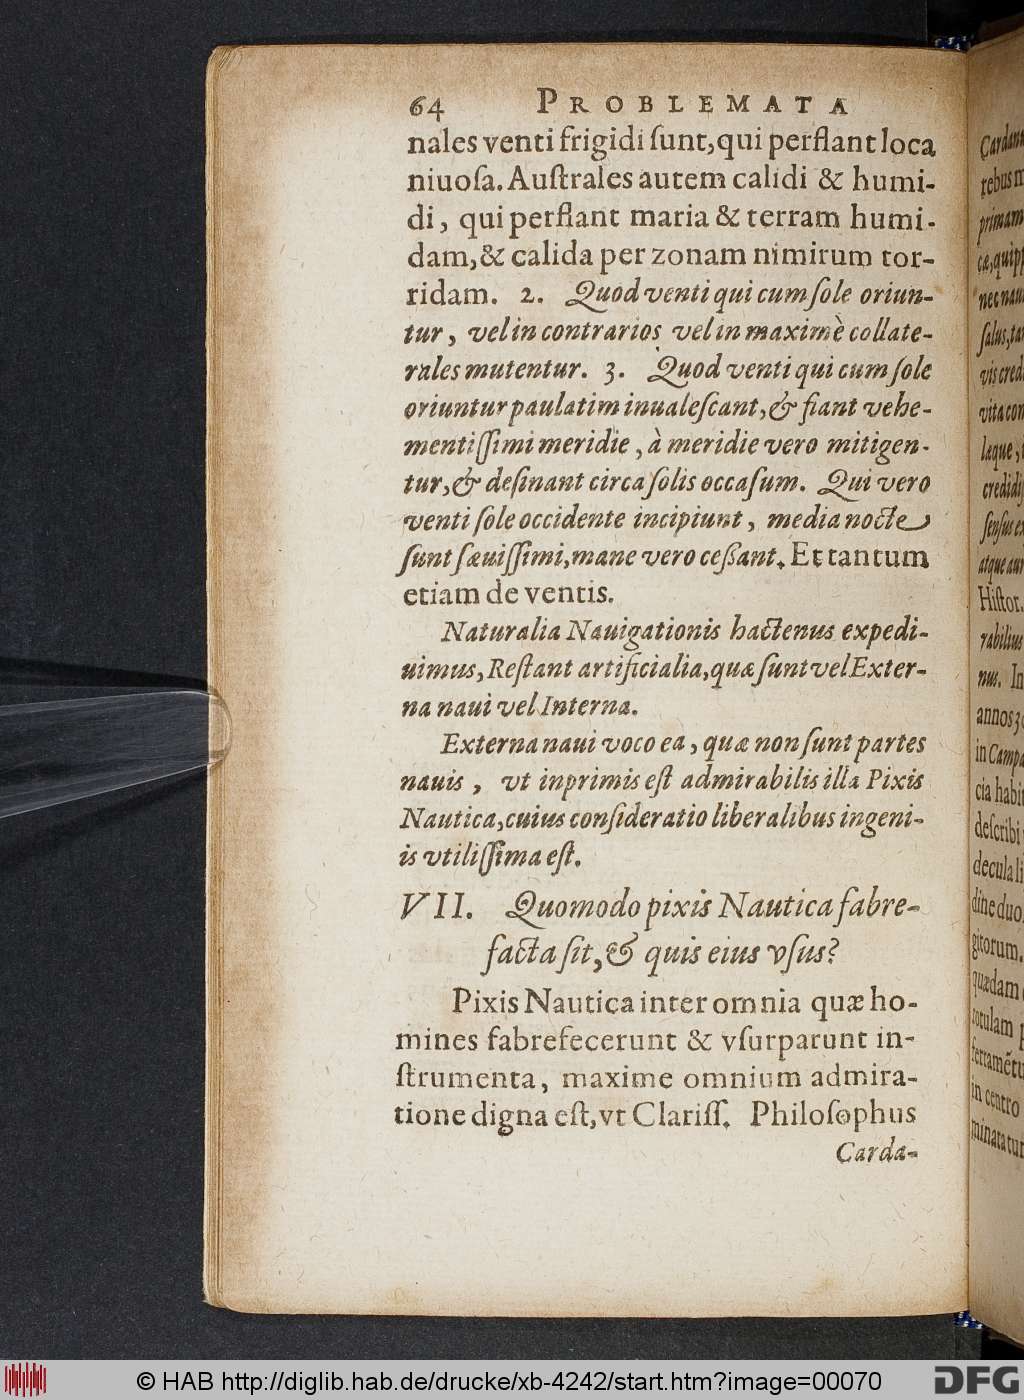 64 PROBLEMATA
nales venti frigidi ſunt, qui perflant loca
niuoſa. Auſtrales autem calidi & humi-
di, qui perflant maria & terram humi-
dam, & calida per zonam nimirum tor-
ridam. 2. Quod venti qui cum ſole oriun-
tur, vel in contrarios vel in maximè collate-
rales mutentur. 3. Quod venti qui cum ſole
oriuntur paulatim inualeſcant, & fiant vehe-
mentiſſimi meridie, à meridie vero mitigen-
tur, & deſinant circa ſolis occaſum. Qui vero
venti ſole occidente incipiunt, media nocte
ſunt ſæuiſſimi, mane vero ceßant. Et tantum
etiam de ventis.
Naturalia Nauigationis hactenus expedi-
uimus, Reſtant artificialia, quæ ſunt vel Exter-
na naui vel Interna.
Externa naui voco ea, quæ non ſunt partes
nauis, vt inprimis eſt admirabilis illa Pixis
Nautica, cuius conſideratio liberalibus ingeni-
is vtiliſſima eſt.
VII. Quomodo pixis Nautica fabre-
facta ſit, & quis eius vſus?
Pixis Nautica inter omnia quæ ho-
mines fabrefecerunt & vſurparunt in-
ſtrumenta, maxime omnium admira-
tione digna eſt, vt Clariſſ. Philoſophus
Carda-
Cardan
rebus
primam
nec nau
ſalus, ta
vis cred
vita con
læque,
credidi
ſenſus ex
atque au
Hiſtor.
rabilius
nus. In
annos 30
in Campa
cia habi
deſcribi
decula li
dine duo
gitorum.
quædam
rotulam
ferramẽtu
in centro
minatatur
© HAB http://diglib.hab.de/drucke/xb-4242/start.htm?image=00070
DFG